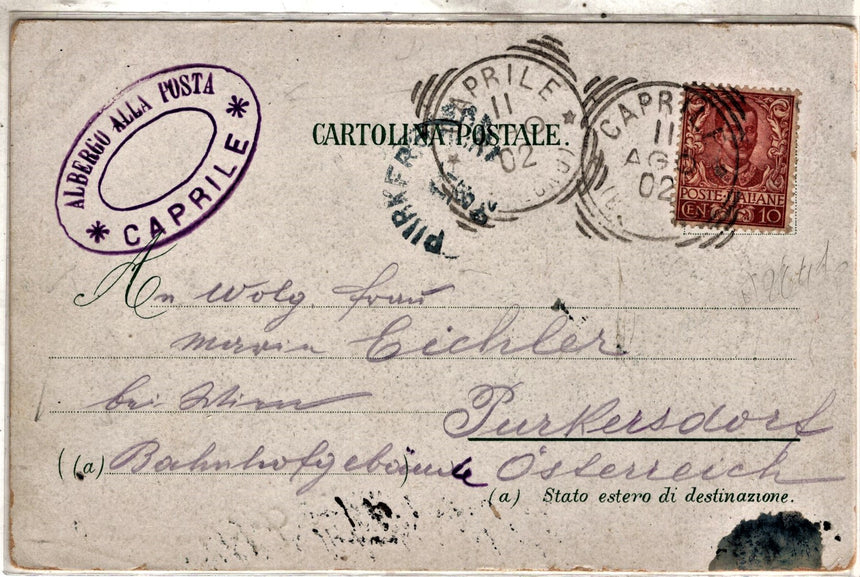 ALBERGO ALLA POSTA
* CAPRILE *
CARTOLINA POSTALE.
CAPRILE
11
02
CAPRILE
11
AGO
02
PURKERS
POSTE ITALIANE
CEN 10
An Wolg Frau
Eichler
bei Wien Purkersdorf
(a) Bahnhofgebäude Österreich
(a) Stato estero di destinazione.